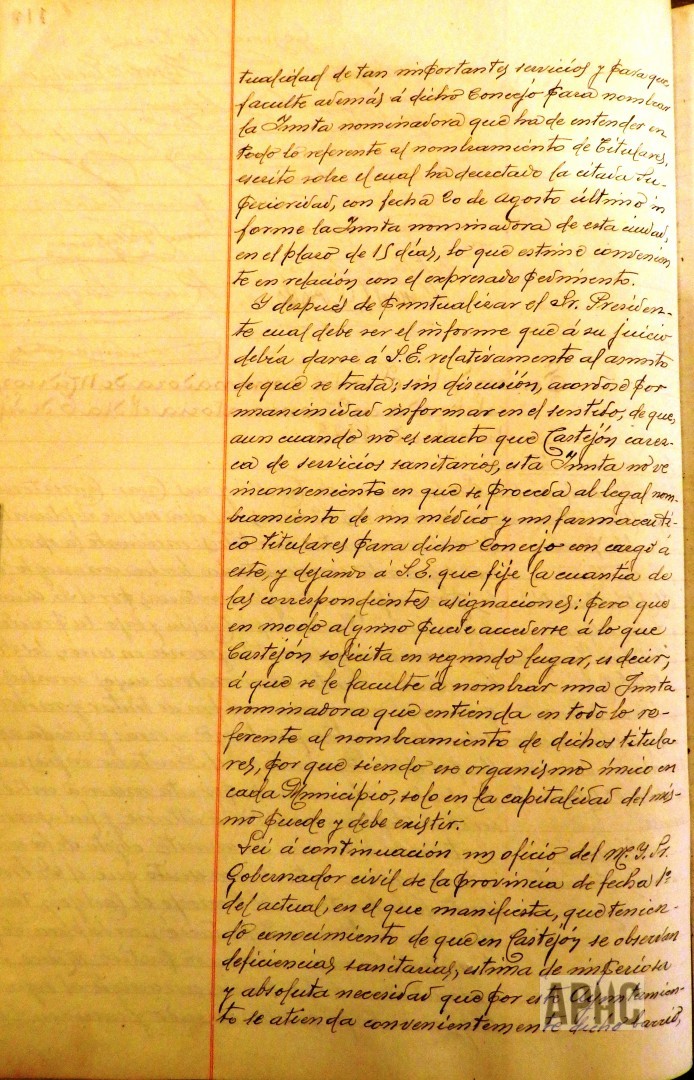 tualidad de tan importantes servicios y para que
faculte además á dicho Concejo para nombrar
la Junta nominadora que ha de entender en
todo lo referente al nombramiento de Titulares,
escrito sobre el cual ha decretado la citada Su-
perioridad, con fecha 20 de Agosto último in
forme la Junta nominadora de esta ciudad,
en el plazo de 15 días, lo que estime convenien
te en relación con el expresado pedimento.
Y después de puntualizar el Sr. Presiden-
te cual debe ser el informe que á su juicio
debía darse á S.E. relativamente al asunto
de que se trata; sin discusión, acordose por
unanimidad informar en el sentido, de que,
aun cuando no es exacto que Castejón carez-
ca de servicios sanitarios, esta Junta no ve
inconveniente en que se proceda al legal nom-
bramiento de un médico y un farmaceúti-
co titulares para dicho Concejo con cargo á
este, y dejando á S.E. que fije la cuantía de
las correspondientes asignaciones; pero que
en modo alguno puede accederse á lo que
Castejón solicita en segundo lugar, es decir,
á que se le faculte á nombrar una Junta
nominadora que entienda en todo lo re-
ferente al nombramiento de dichos titula
res, por que siendo ese organismo único en
cada Municipio, solo en la capitalidad del mis-
mo puede y debe existir.
Leí á continuación un oficio del M. Y. Sr.
Gobernador civil de la provincia de fecha 1º
del actual, en el que manifiesta, que tenien-
do conocimiento de que en Castejón se observan
deficiencias sanitarias, estima de imperiosa
y absoluta necesidad que por este Ayuntamien-
to se atienda convenientemente dicho barrio,
APHC